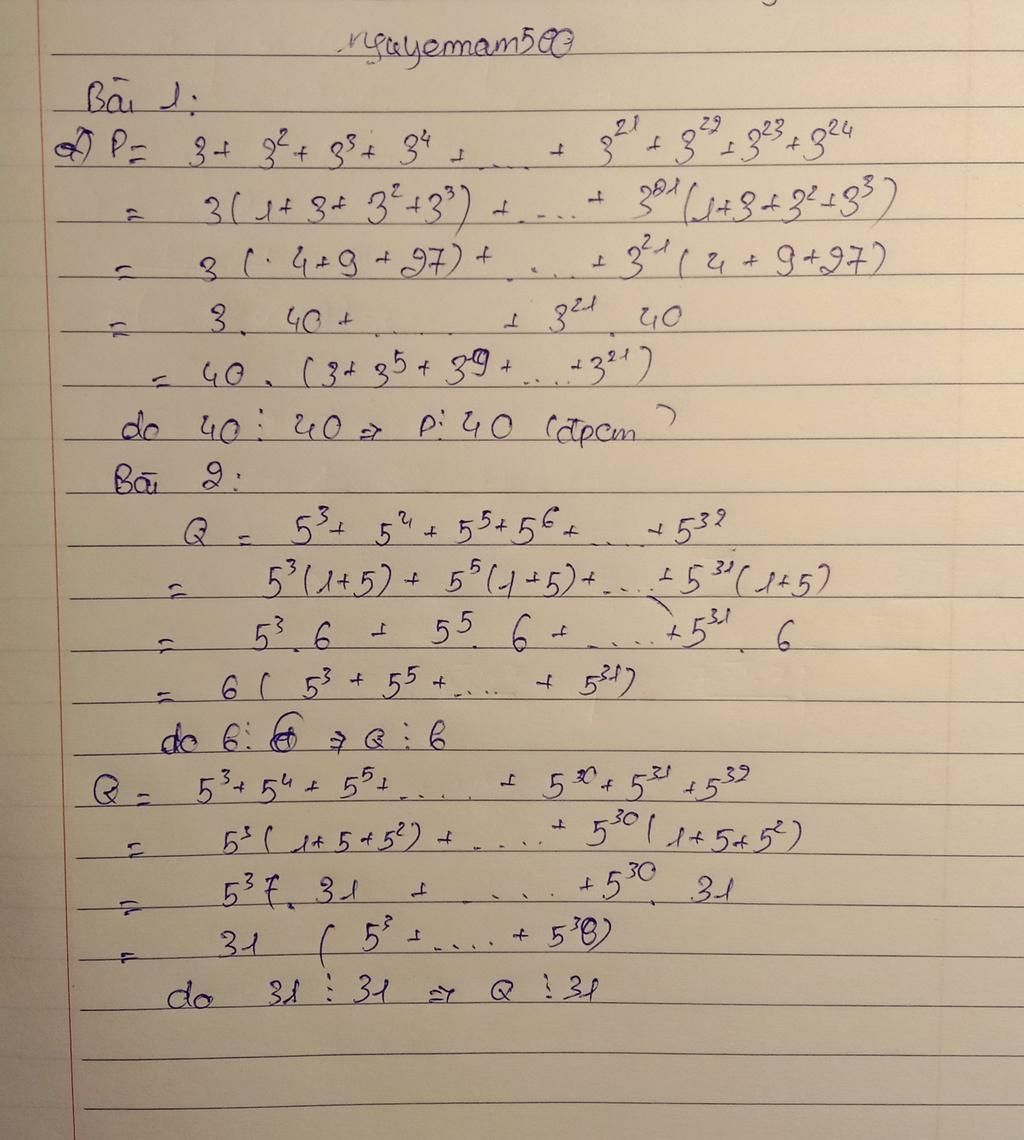 nguyennam500
Bài 1:
a) P = 3 + 3² + 3³ + 3⁴ + .... + 3²¹ + 3²² + 3²³ + 3²⁴
= 3(1 + 3 + 3² + 3³) + .... + 3²¹(1 + 3 + 3² + 3³)
= 3(4 + 9 + 27) + .... + 3²¹(4 + 9 + 27)
= 3 . 40 + ...... + 3²¹ . 40
= 40 . (3 + 3⁵ + 3⁹ + .... + 3²¹)
do 40 ⋮ 40 ⇒ P ⋮ 40 (đpcm)
Bài 2:
Q = 5³ + 5⁴ + 5⁵ + 5⁶ + .... + 5³²
= 5³(1+5) + 5⁵(1+5) + .... + 5³¹(1+5)
= 5³ . 6 + 5⁵ . 6 + ..... + 5³¹ . 6
= 6 ( 5³ + 5⁵ + ..... + 5³¹)
do 6 ⋮ 6 ⇒ Q ⋮ 6
Q = 5³ + 5⁴ + 5⁵ + ..... + 5³⁰ + 5³¹ + 5³²
= 5³(1+5+5²) + ..... + 5³⁰(1+5+5²)
= 5³ . 31 + ..... + 5³⁰ . 31
= 31 ( 5³ + ..... + 5³⁰)
do 31 ⋮ 31 ⇒ Q ⋮ 31